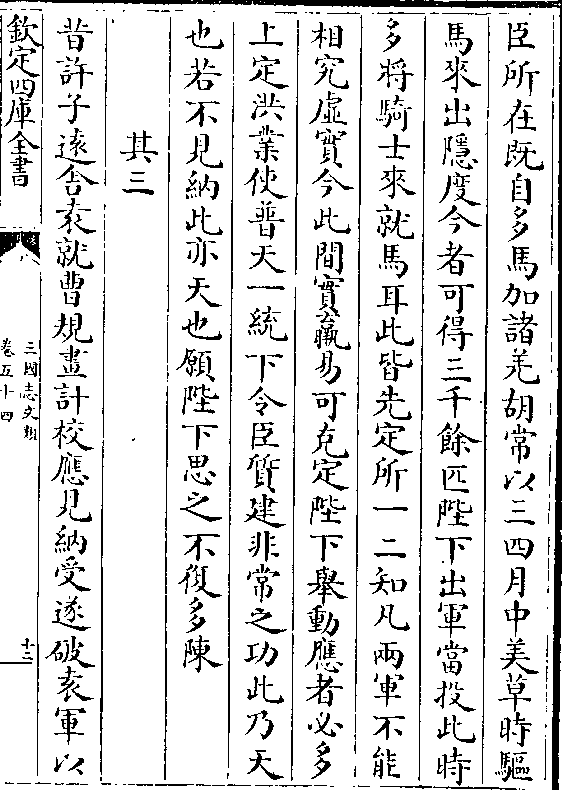 臣所在既自多馬加諸羌胡常以三四月中美草時驅
馬來出隱度今者可得三千餘匹陛下出軍當投此時
多將騎士來就馬耳此皆先定所一二知凡兩軍不能
相究虛實今此間實羸易可克定陛下舉動應者必多
上定洪業使普天一統下令臣質建非常之功此乃天
也若不見納此亦天也願陛下思之不復多陳
其三
昔許子遠舍袁就曹規畫計校應見納受遂破袁軍以
欽定四庫全書
三國志文類
卷五十四
十二